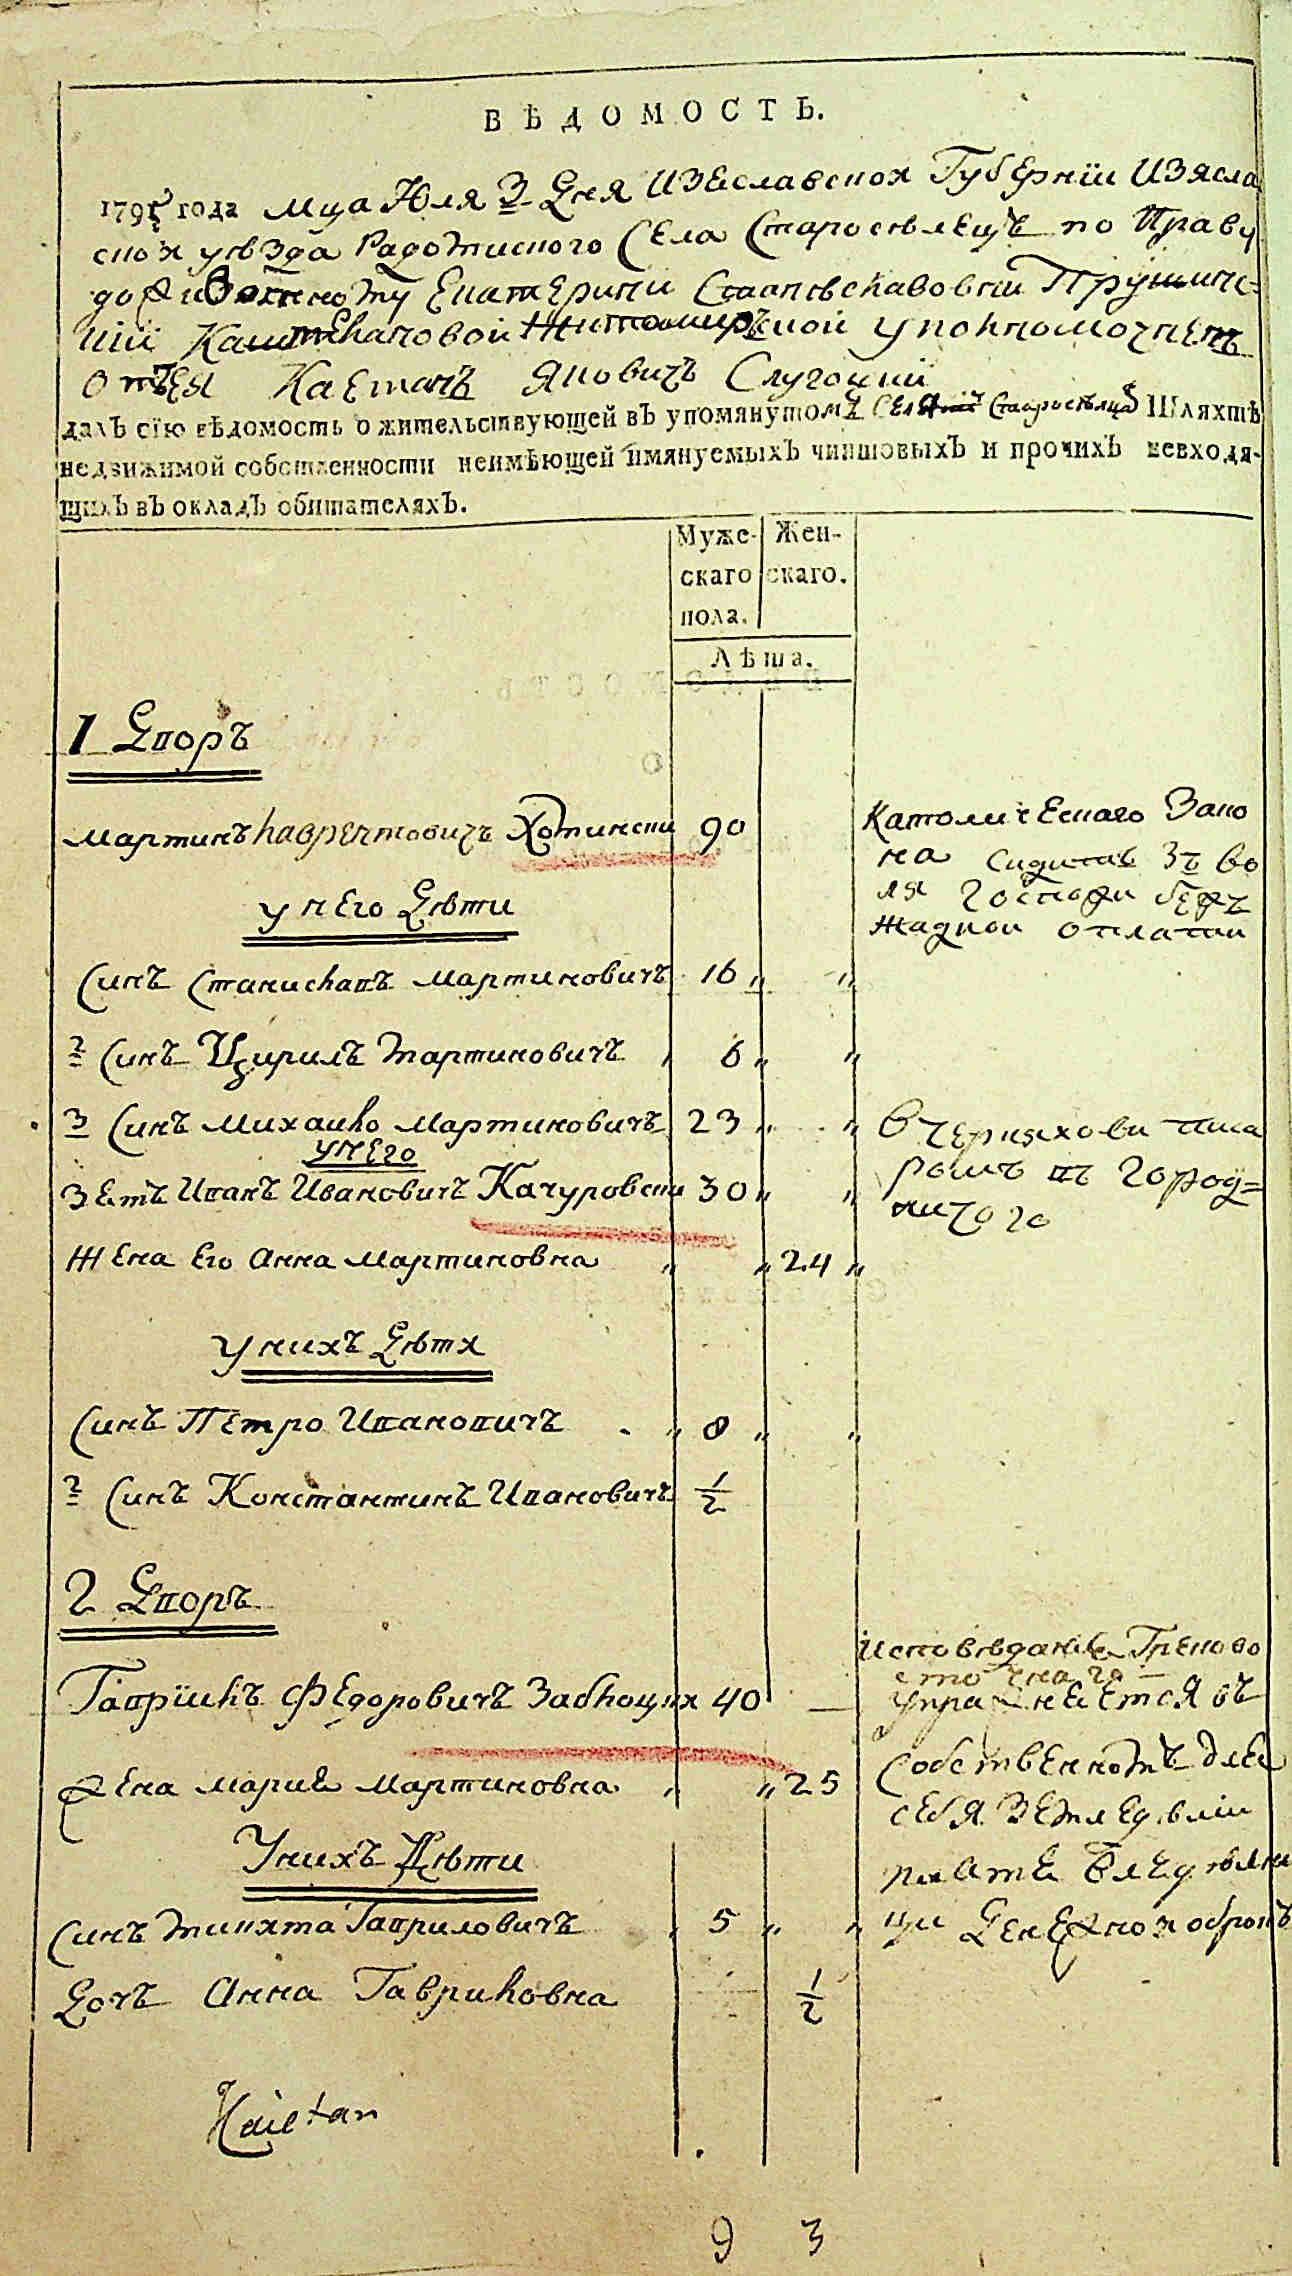 ВѢДОМОСТЬ.
1795 года мца Юля 3 Дня Изяславской Губернїи Изясла
ской уѣзда Радомисного Села Старосѣлецъ по Праву
Екатерини Прушинс=
кїй Каштеляновой Житомирской уполномоченъ
отъ Ея Каетанъ Яновичъ Слугоцкий
далъ сїю вѣдомость о жительствующей въ упомянутомъ Селѣ Старосѣлца Шляхтѣ
недвижимой собственности неимѣющей имянуемыхъ чиншовыхъ и прочихъ невходя-
щихъ въ окладъ обитателяхъ.
Муже- Жен-
скаго скаго.
пола.
Лѣта.
1 Дворъ
Мартинъ Лаврентовичъ Хотински 90
Католическаго Зако
на сидитъ зъ во
ля господи безъ
жадной оплати
у Него Дѣти
Синъ Станиславъ Мартиновичъ 16 „ „
2 Синъ Цирилъ Мартиновичъ „ 6 „ „
3 Синъ Михайло Мартиновичъ 23 „ „
в Черняхови писа
ромъ въ город=
ничого
у Него
Зетъ Иванъ Ивановичъ Качуровски 30 „ „
Жена Его Анна Мартиновна „ „ 24 „
у нихъ Дѣтя
Синъ Петро Ивановичъ „ 8 „ „
2 Синъ Константинъ Ивановичъ 1/2
2 Дворъ
Гаврїилъ Федоровичъ Заблоцкя 40 —
Исповѣданїя Греково
упражнеется въ
Собственномъ длея
себя Земледѣлїи
Жена Марие Мартиновна „ „ 25
У нихъ Дѣти
Синъ Микита Гавриловичъ „ 5 „ „
ци Денежной оброкъ
Дочъ Анна Гавриловна 1/2
Kaietan
9 3